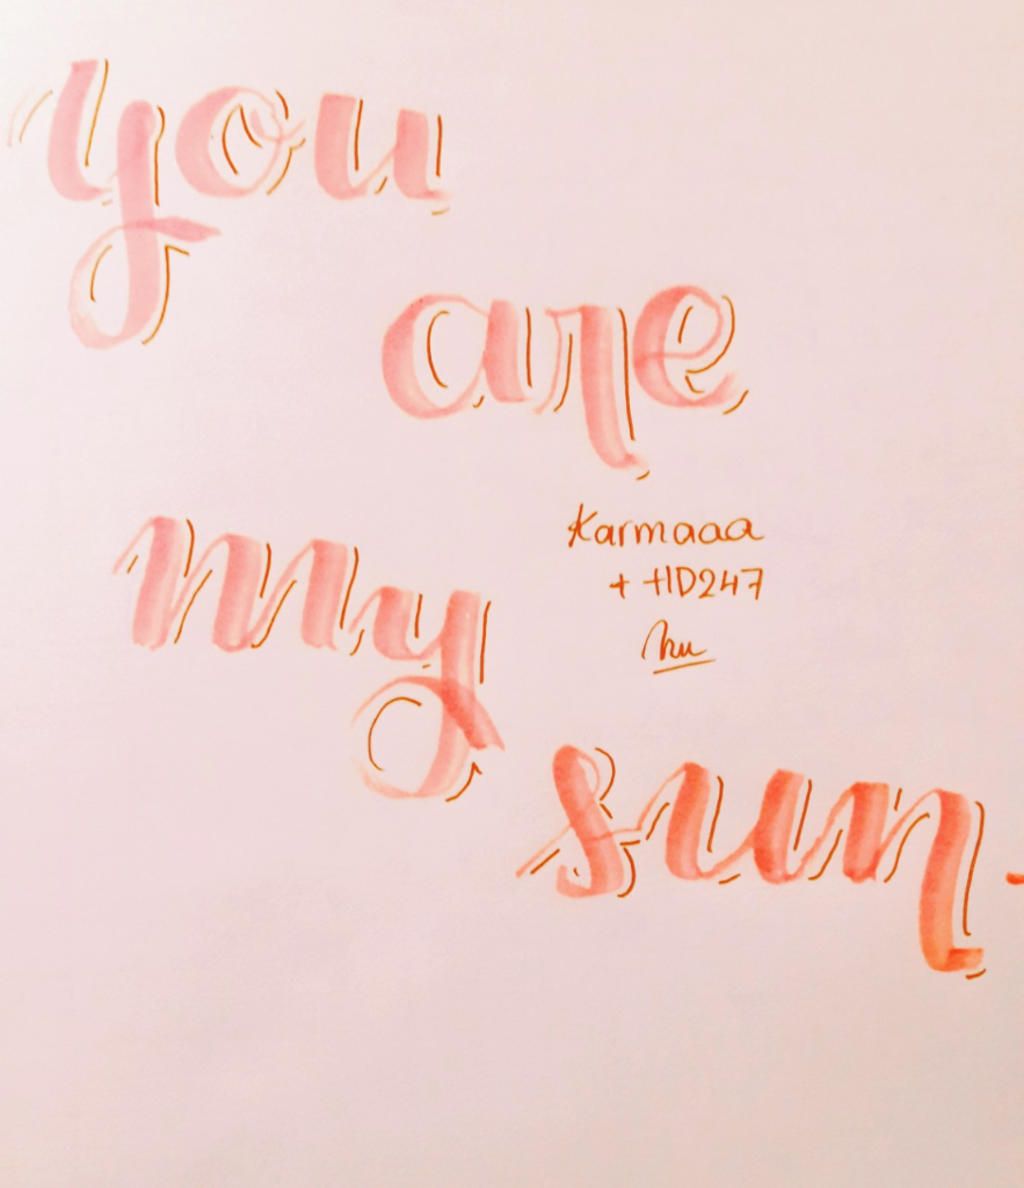 you
are
my
Karmaaa
+ HD247
sun